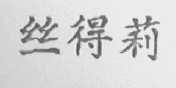 丝得莉